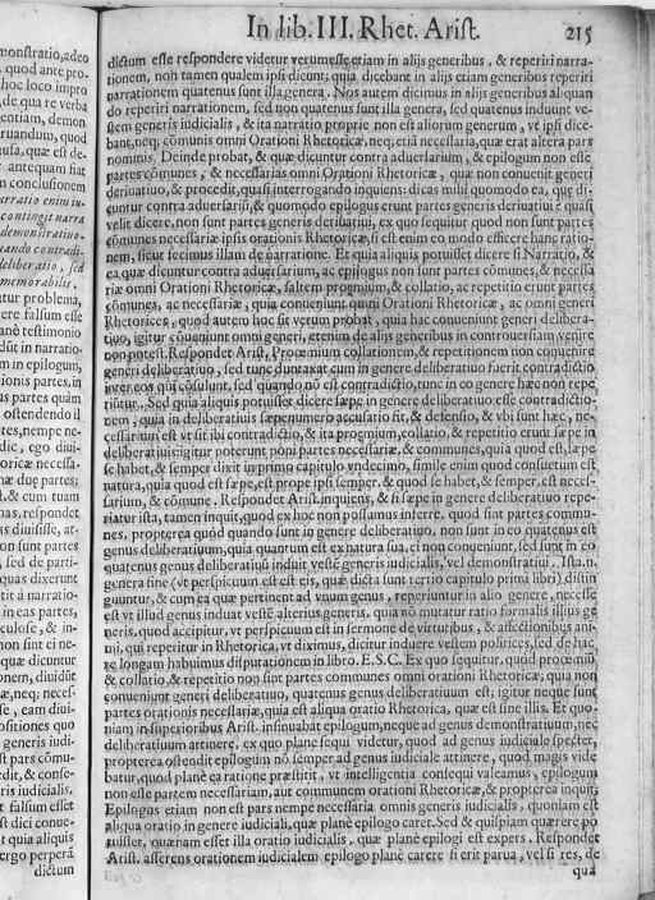 In lib. III. Rhet. Arist. 215
monstratio, adeo
quod ante pro-
hoc loco impro
de qua re verba
entiam, demon
ruandum, quod
usa, quæ est de-
antequam fiat
n conclusionem
arratio enim iu-
contingit narra
demonstratiuo.
eando contradi-
deliberatio, sed
memorabilis.
tur problema,
ere falsum esse
anè testimonio
dũt in narratio-
m in epilogum,
ionis partes, in
us partes quàm
ostendendo il
tes, nempe ne-
dic, ego diui-
oricæ necessa-
næ duę partes;
t. & cum tuam
nas, respondet
s diuisisse, at-
on sunt partes
, sed de parti-
quas dixerunt
tit à narratio-
in eas partes,
culosè, & in-
non sint ei ne-
quæ dicuntur
onem, diuidũt
æ, neq; neces-
se, eam diui-
ositiones quo
generis iudi-
st pars cõmu-
edit, & conse-
ris iudicialis.
t falsum esset
st dici conue-
t quia aliquis
ergo perperã
dictum
dictum esse respondere videtur verum esse etiam in alijs generibus, & reperiri narra-
tionem, non tamen qualem ipsi dicunt; quia dicebant in alijs etiam generibus reperiri
narrationem quatenus sunt illa genera. Nos autem dicimus in alijs generibus aliquan
do reperiri narrationem, sed non quatenus sunt illa genera, sed quatenus induunt ve-
stem generis iudicialis, & ita narratio proprie non est aliorum generum, vt ipsi dice-
bant, neq; cõmunis omni Orationi Rhetoricæ, neq; etiã necessaria, quæ erat altera pars
nominis. Deinde probat, & quæ dicuntur contra aduersarium, & epilogum non esse
partes cõmunes, & necessarias omni Orationi Rhetoricæ, quæ non conuenit generi
deriuatiuo, & procedit, quasi interrogando inquiens: dicas mihi quomodo ea, quę di-
cuntur contra aduersariũ, & quomodo epilogus erunt partes generis deriuatiui? quasi
velit dicere, non sunt partes generis deriuatiui, ex quo sequitur quod non sunt partes
cõmunes necessariæ ipsis orationis Rhetoricæ, si est enim eo modo efficere hanc ratio-
nem, sicut fecimus illam de narratione. Et quia aliquis potuisset dicere si Narratio, &
ea quæ dicuntur contra aduersarium, ac epilogus non sunt partes cõmunes, & necessa
riæ omni Orationi Rhetoricæ, saltem proemium, & collatio, ac repetitio erunt partes
cõmunes, ac necessariæ, quia conueniunt omni Orationi Rhetoricæ, ac omni generi
Rhetorices, quod autem hoc sit verum probat, quia hæc conueniunt generi delibera-
tiuo, igitur cõueniunt omni generi, etenim de alijs generibus in controuersiam venire
non potest. Respondet Arist. Proœmium collationem, & repetitionem non conuenire
generi deliberatiuo, sed tunc duntaxat cum in genere deliberatiuo fuerit contradictio
inter eos qui cõsulunt, sed quando nõ est contradictio, tunc in eo genere hæc non repe
riũtur. Sed quia aliquis potuisset dicere sæpe in genere deliberatiuo esse contradictio-
nem, quia in deliberatiuis sæpenumero accusatio fit, & defensio, & vbi sunt hæc, ne-
cessarium est vt sit ibi contradictio, & ita proemium, collatio, & repetitio erunt sæpe in
deliberatiuis: igitur poterunt poni partes necessariæ, & communes, quia quod est, sæpe
se habet, & semper dixit in primo capitulo vndecimo, simile enim quod consuetum est
natura, quia quod est sæpe, est prope ipsi semper, & quod se habet, & semper, est neces-
sarium, & cõmune. Respondet Arist. inquiens, & si sæpe in genere deliberatiuo repe-
riatur ista, tamen inquit, quod ex hoc non possumus inferre, quod sint partes commu-
nes, propterea quòd quando sunt in genere deliberatiuo, non sunt in eo quatenus est
genus deliberatiuum, quia quantum est ex natura sua, ei non conueniunt, sed sunt in eo
quatenus genus deliberatiuũ induit vestẽ generis iudicialis, vel demonstratiui. Ista. n.
genera sine (vt perspicuum est est eis, quæ dicta sunt tertio capitulo primi libri) distin
guuntur, & cum ea quæ pertinent ad vnum genus, reperiuntur in alio genere, necesse
est vt illud genus induat vestẽ alterius generis, quia nõ mutatur ratio formalis illius ge
neris, quod accipitur, vt perspicuum est in sermone de virtutibus, & affectionibus ani-
mi, qui reperitur in Rhetorica, vt diximus, dicitur induere vestem politices, sed de hac
re longam habuimus disputationem in libro. E.S.C. Ex quo sequitur, quòd proemiũ,
& collatio, & repetitio non sint partes communes omni orationi Rhetoricæ, quia non
conueniunt generi deliberatiuo, quatenus genus deliberatiuum est; igitur neque sunt
partes orationis necessariæ, quia est aliqua oratio Rhetorica, quæ est sine illis. Et quo-
niam in superioribus Arist. insinuabat epilogum, neque ad genus demonstratiuum, nec
deliberatiuum attinere, ex quo planè sequi videtur, quod ad genus iudiciale spectet,
propterea ostendit epilogum nõ semper ad genus iudiciale attinere, quod magis vide
batur, quod planè ea ratione præstitit, vt intelligentia consequi valeamus, epilogum
non esse partem necessariam, aut communem orationi Rhetoricæ, & propterea inquit;
Epilogus etiam non est pars nempe necessaria omnis generis iudicialis, quoniam est
aliqua oratio in genere iudiciali, quæ planè epilogo caret. Sed & quispiam quærere po
tuisset, quænam esset illa oratio iudicialis, quæ planè epilogi est expers. Respondet
Arist. asserens orationem iudicialem epilogo planè carere si erit parua, vel si res, de
qua